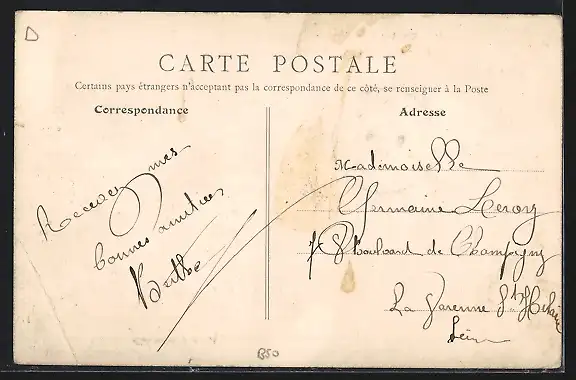 D
CARTE POSTALE
Certains pays étrangers n'acceptant pas la correspondance de ce côté, se renseigner à la Poste
Correspondance
Adresse
Recevez mes
bonnes amitiés
Mademoiselle
Germaine Leroy
7 Boulevard de Champigny
La Varenne St Hilaire
Seine
B50